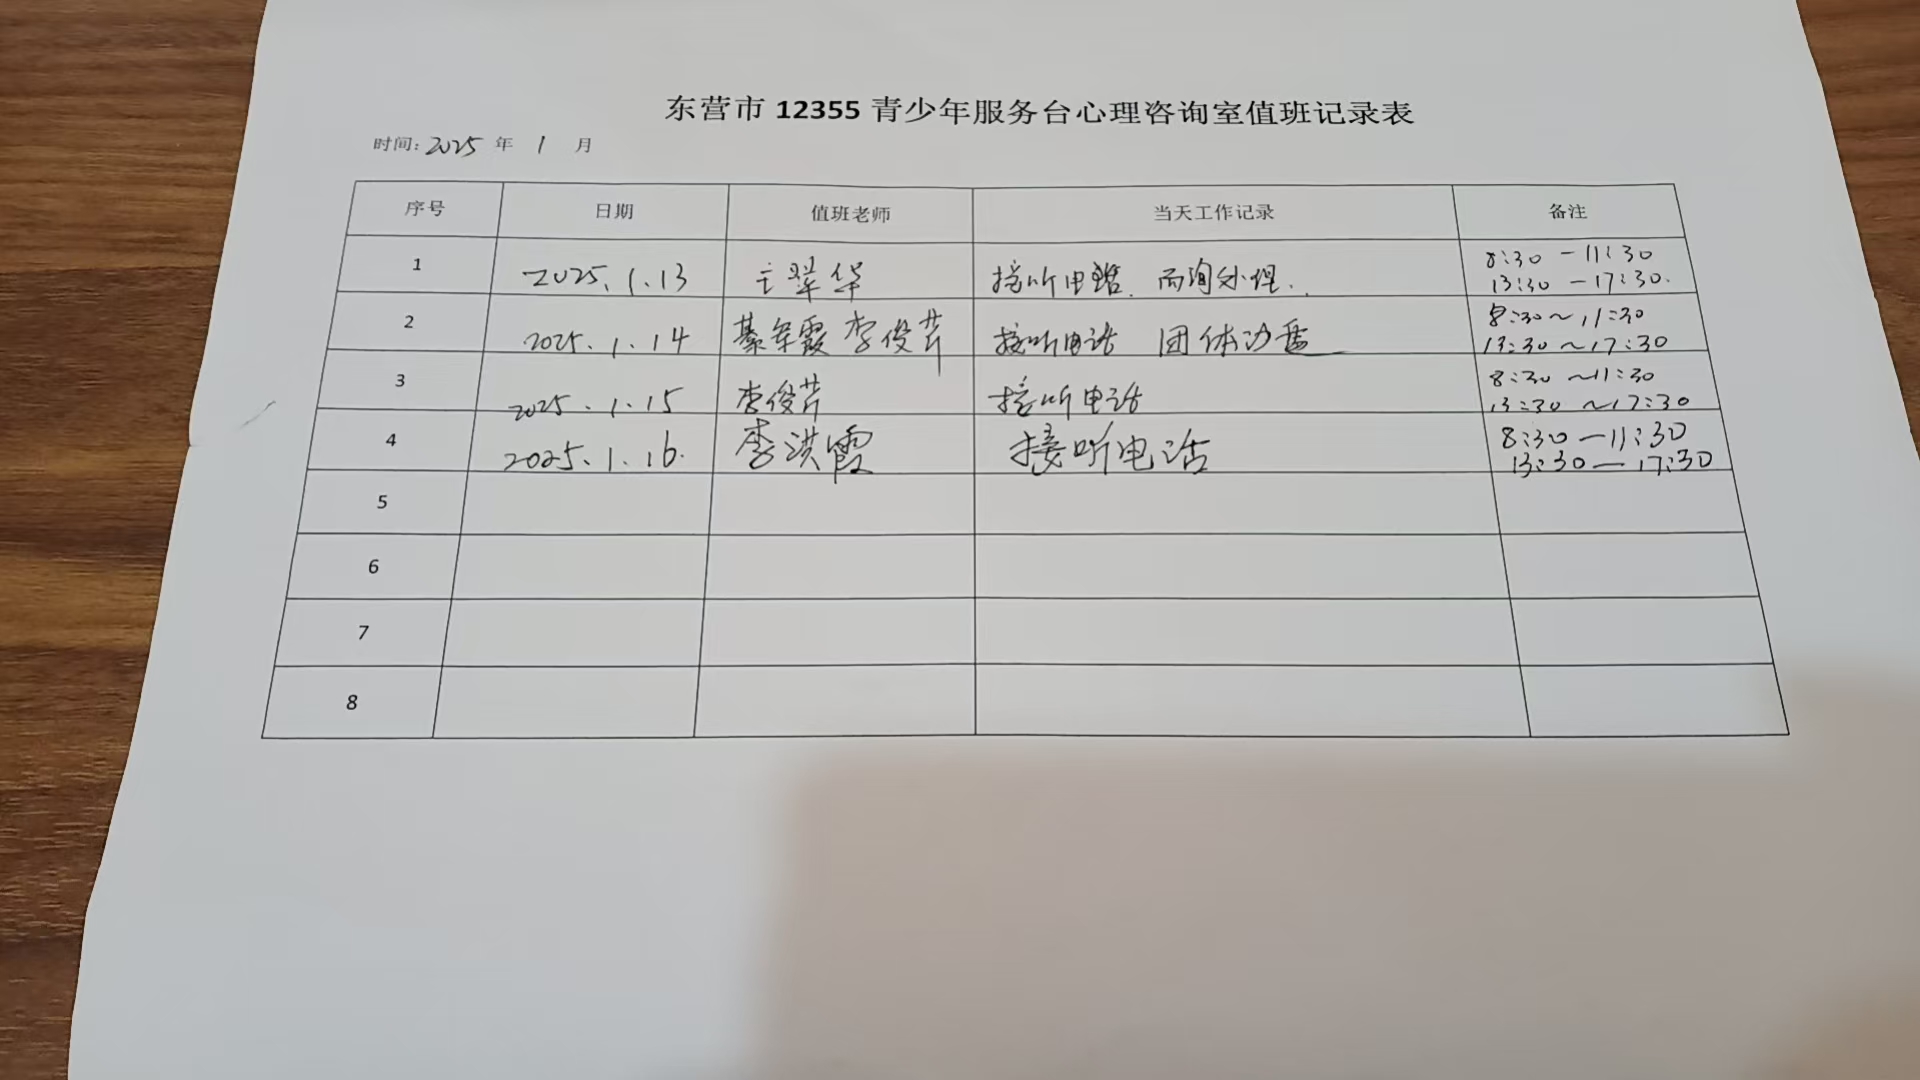 东营市 12355 青少年服务台心理咨询室值班记录表
时间: 2025 年 1 月
序号 日期 值班老师 当天工作记录 备注
1 2025.1.13 王翠华 接听电话. 8:30 - 11:30
13:30 - 17:30.
2 2025.1.14 綦军霞 李俊芹 接听电话 团体沙盘 8:30~11:30
13:30~17:30
3 2025.1.15 李俊芹 接听电话 8:30 ~11:30
13:30 ~17:30
4 2025.1.16. 李洪霞 接听电话 8:30—11:30
13:30—17:30
5
6
7
8